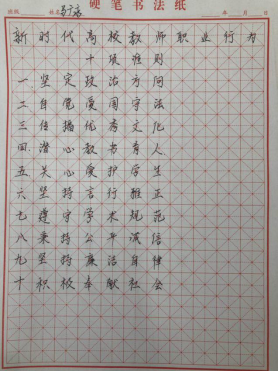 硬笔书法纸
新时代高校教师职业行为
十项准则
一.坚定政治方向
二自觉爱国守法
三传播优秀文化
四.潜心教书育人.
五关心爱护学生
六坚持言行雅正
七遵守学术规范
八秉持公平诚信
九坚持廉洁自律
十积极奉献社会